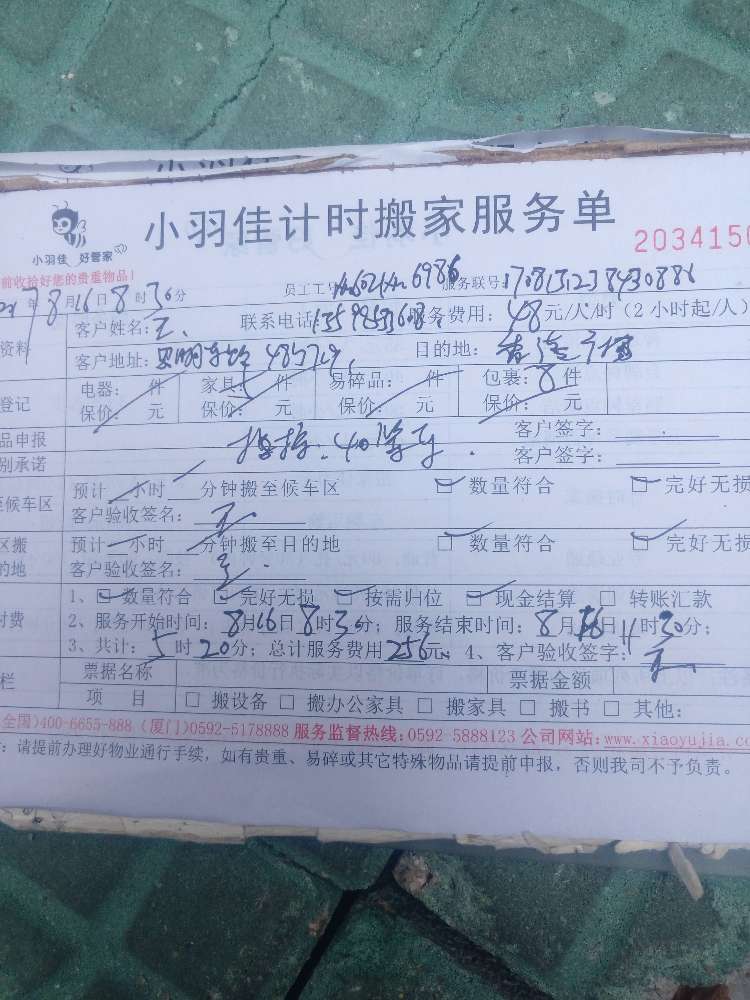 小羽佳 好管家
小羽佳计时搬家服务单
2034150
前收拾好您的贵重物品!
年8月16日8时30分 员工工号 6986 服务联号:
资料 客户姓名:王 联系电话: 服务费用:48元/人/时(2小时起/人)
客户地址: 目的地:
登记 电器: 件 家具:5件 易碎品: 件 包裹:8件
保价: 元 保价: 元 保价: 元 保价: 元
品申报 客户签字:
别承诺 客户签字:
至候车区 预计 小时 分钟搬至候车区 数量符合 完好无损
客户验收签名:王
区搬 预计 小时 分钟搬至目的地 数量符合 完好无损
的地 客户验收签名:王
1、数量符合 完好无损 按需归位 现金结算 转账汇款
付费 2、服务开始时间:8月16日8时30分;服务结束时间:8月16日11时30分;
3、共计:5时20分;总计服务费用256元;4、客户验收签字:王
栏 票据名称 票据金额
项 目 □ 搬设备 □ 搬办公家具 □ 搬家具 □ 搬书 □ 其他:
全国)400-6655-888 (厦门)0592-5178888 服务监督热线:0592-5888123 公司网站:www.xiaoyujia.co
:请提前办理好物业通行手续,如有贵重、易碎或其它特殊物品请提前申报,否则我司不予负责。